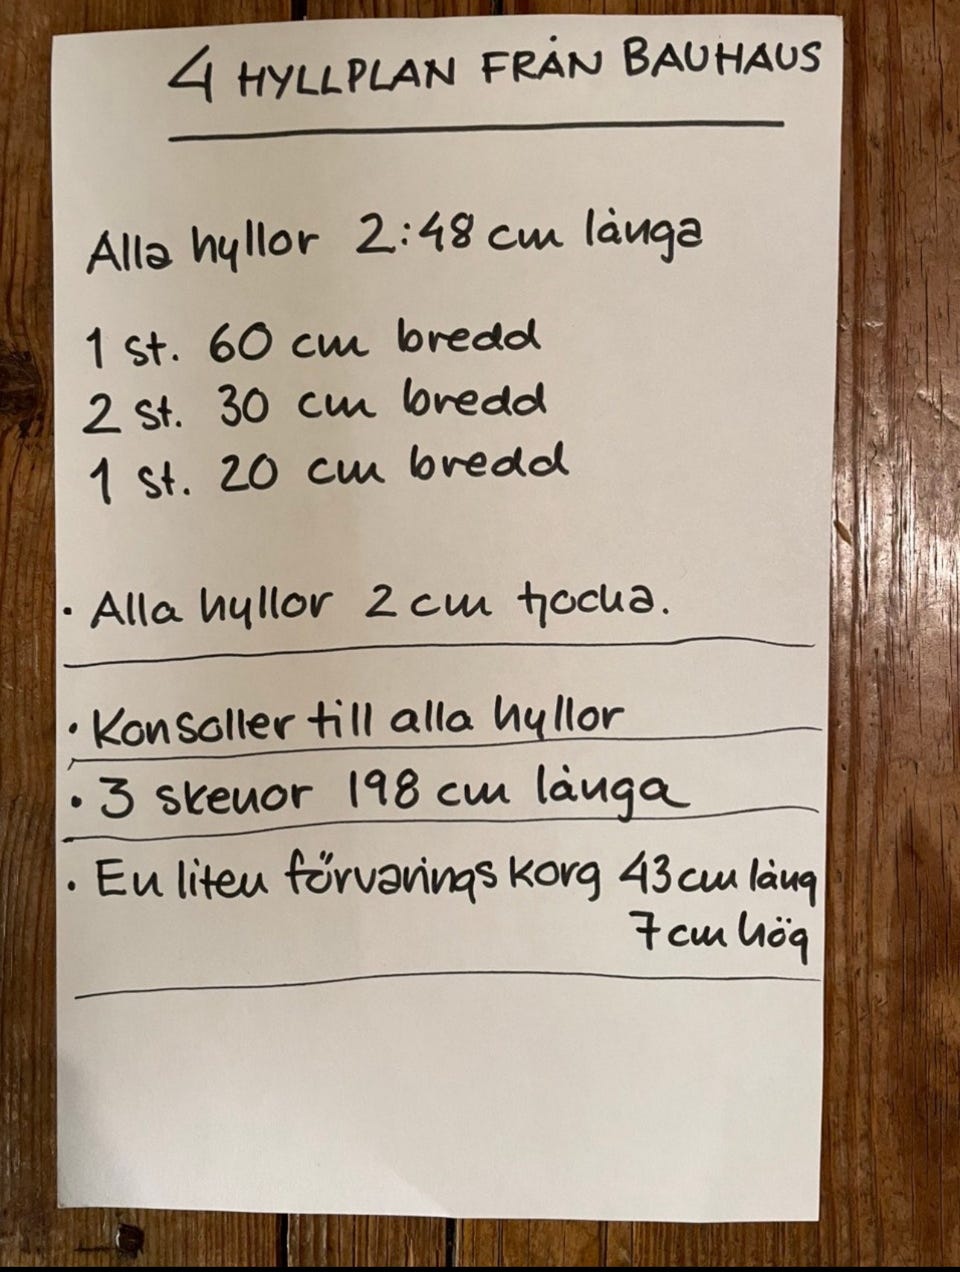 4 HYLLPLAN FRÅN BAUHAUS
Alla hyllor 2:48 cm långa
1 st. 60 cm bredd
2 st. 30 cm bredd
1 st. 20 cm bredd
· Alla hyllor 2 cm tjocka.
· Konsoller till alla hyllor
· 3 skenor 198 cm långa
· En liten förvarings korg 43 cm lång
7 cm hög